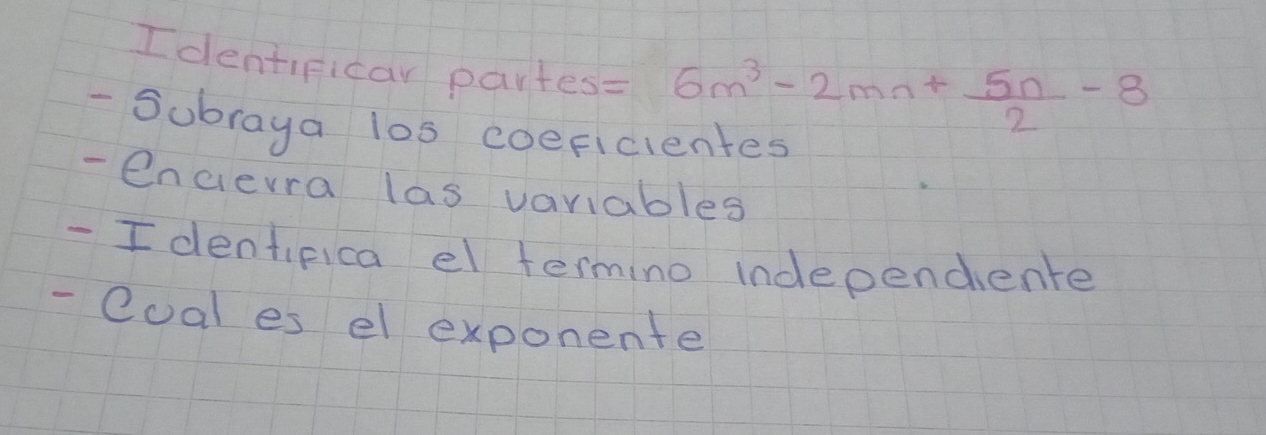 Identificar partes= 6m³ - 2mn + 5n/2 - 8
- Subraya los coeficientes
- encierra las variables
- Identifica el termino independiente
- Cual es el exponente